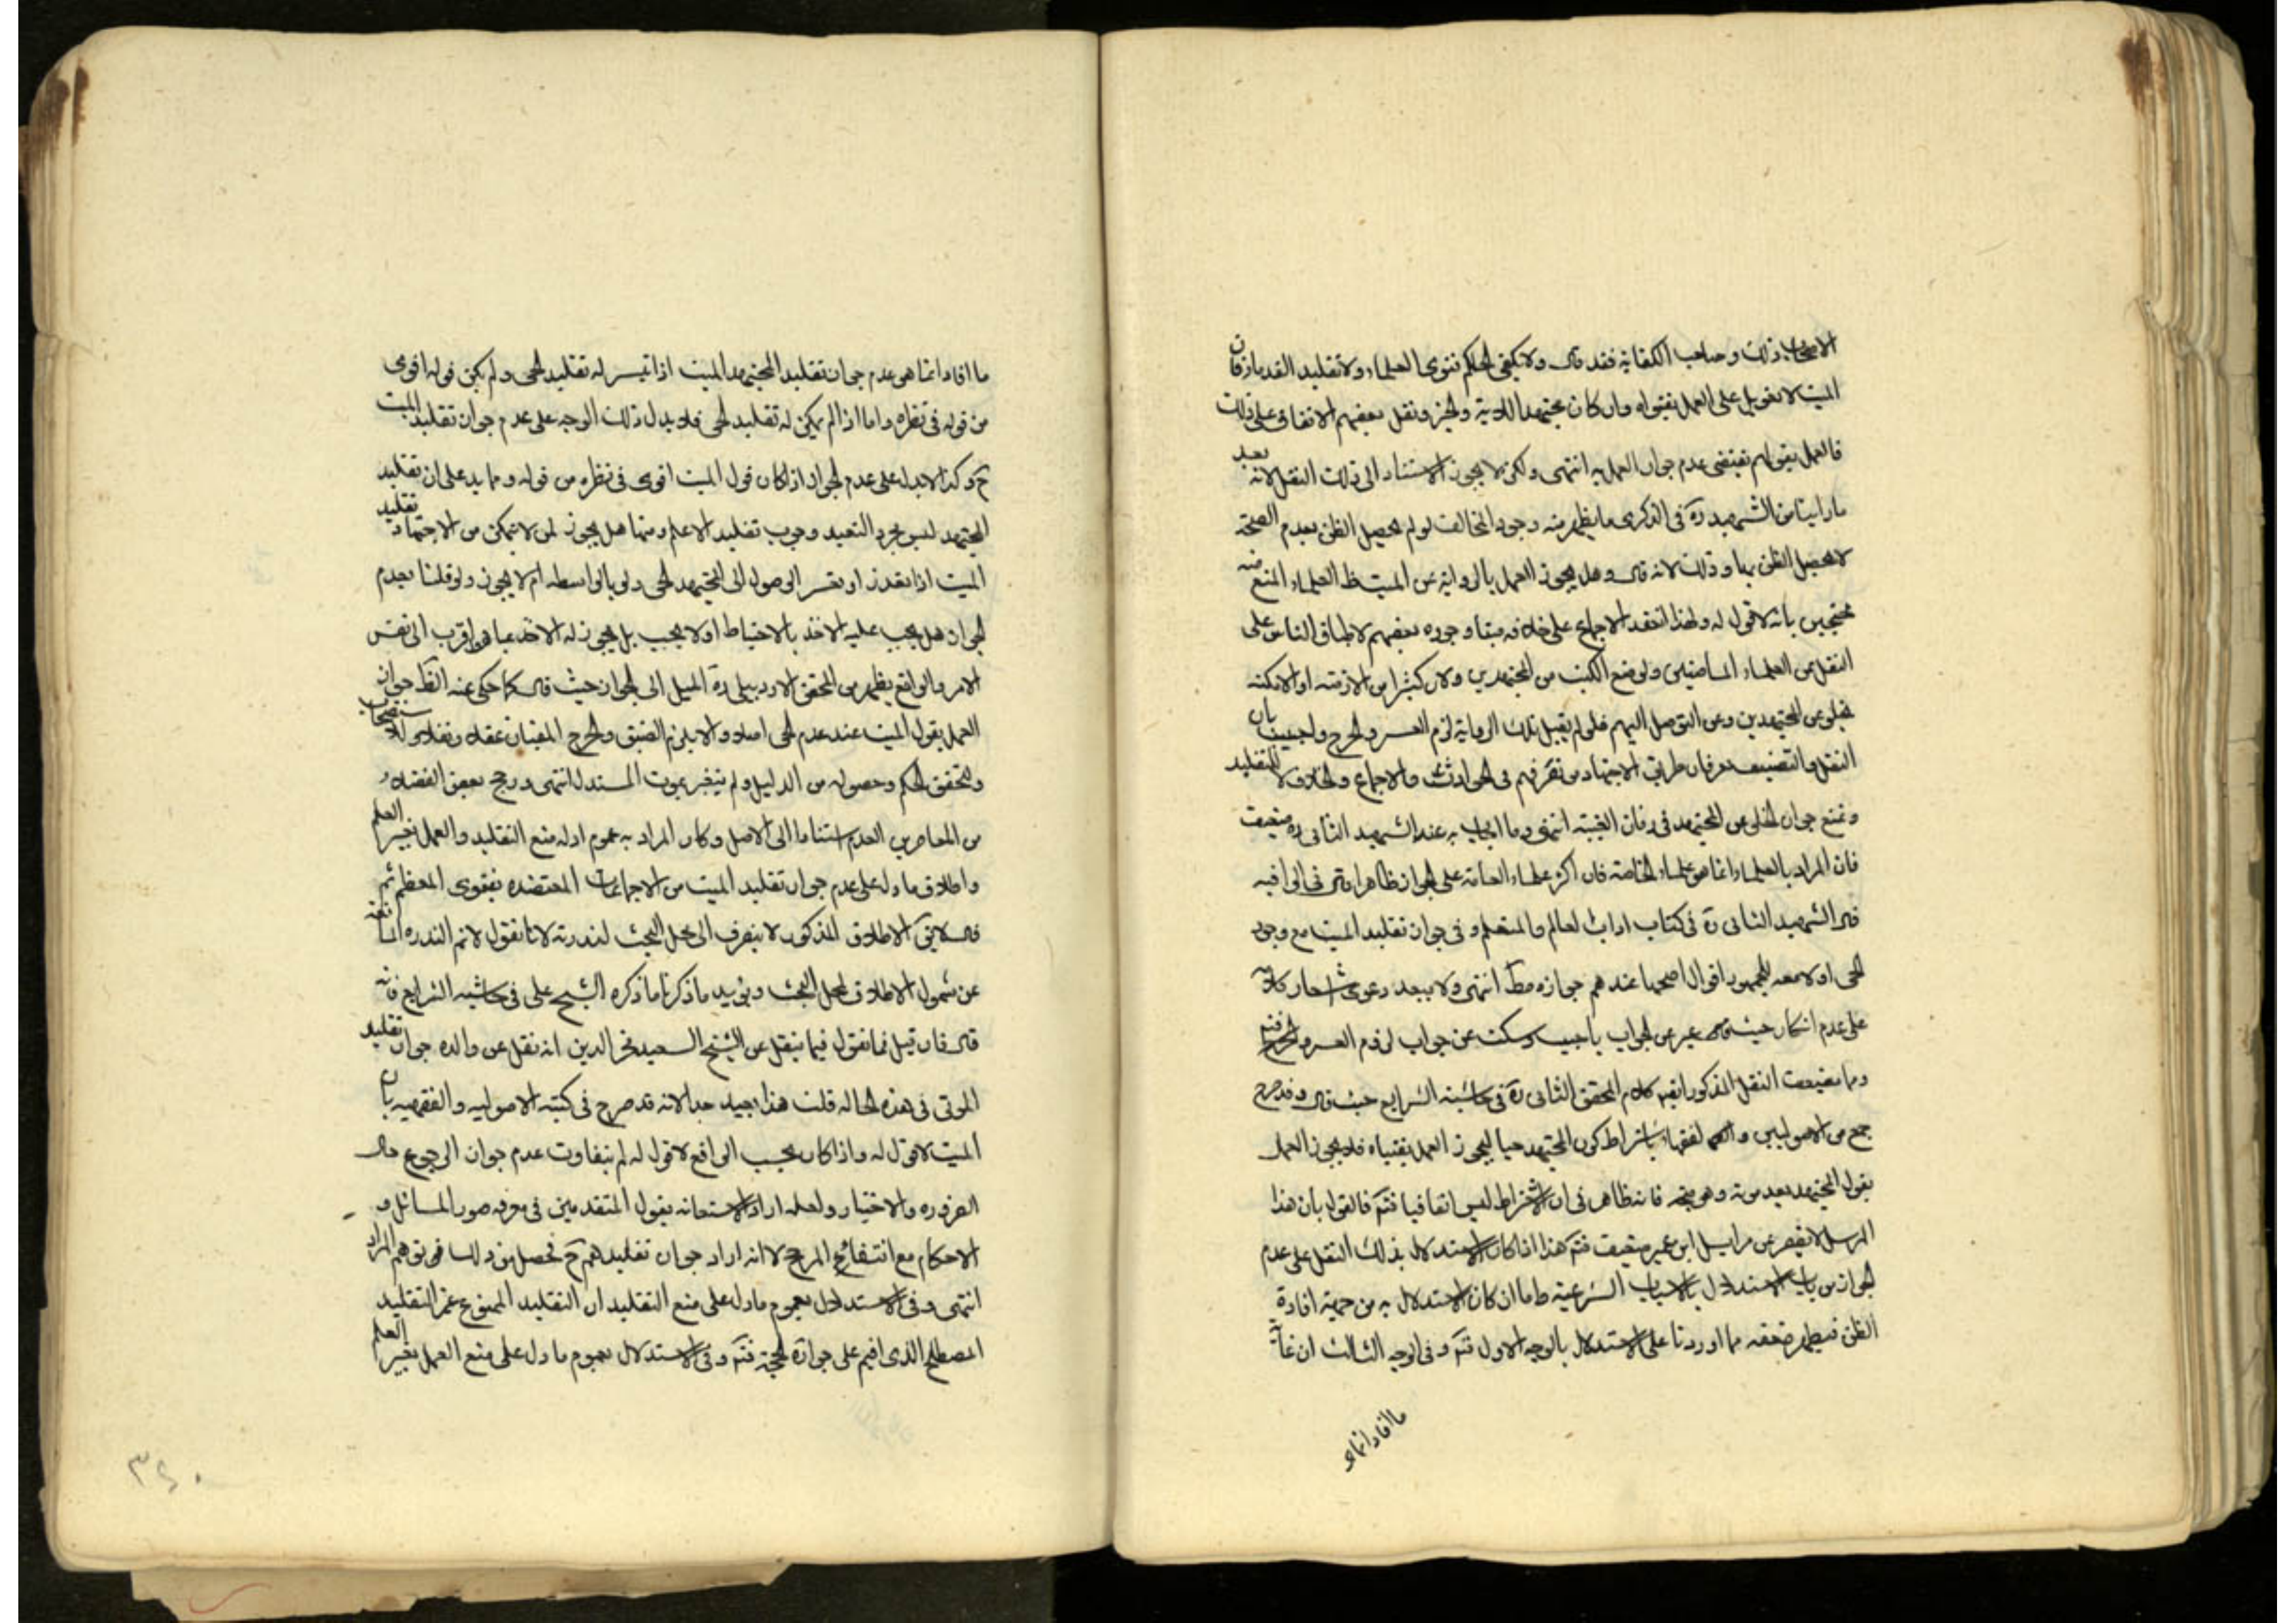 الاصحاب ذلك وصاحب الكفاية فقد قال ولا يكفي للحاكم فتوى العلماء ولا تقليد القدماء فان
الميت لا تعويل على العمل بفتواه وان كان مجتهدا ونقل بعضهم الاتفاق على ذلك
فالعمل بقولهم يقتضى عدم جواز العمل به انتهى ولكن لا يجوز الاستناد الى ذلك النقل لانه بعد
ما راينا من الشهيد ره فى الذكرى ما يظهر منه وجود المخالف لو لم يحصل الظن بعدم الصحة
لا يحصل الظن بها وذلك لانه قال وهل يجوز العمل بالرواية عن الميت ظ العلماء المنع منه
محتجين بانه لا قول له ولهذا انعقد الاجماع على خلافه ميتا وجوزه بعضهم لاطباق الناس على
النقل عن العلماء الماضين ولوضع الكتب من المجتهدين ولان كثيرا من الازمنة او الامكنة
تخلو عن المجتهدين وعن التوصل اليهم فلو لم يقبل تلك الرواية لزم العسر والحرج واجيب بان
النقل والتصنيف يعرفان طريق الاجتهاد من تصرفهم فى الحوادث والاجماع والخلاف لا للتقليد
ونمنع جواز الخلو عن المجتهد فى زمان الغيبة انتهى وما اجاب به عند الشهيد الثانى ره ضعيف
فان المراد بالعلماء انما هو علماء الخاصة فان اكثر علماء العامة على الجواز ظاهرا قال فى الوافيه
قال الشهيد الثانى ره فى كتاب اداب العالم والمتعلم و فى جواز تقليد الميت مع وجود
الحى او لا معه للجمهور اقوال اصحها عندهم جوازه مط انتهى ولا يبعد دعوى اشعار كلامه
على عدم انكار حيث عبر عن الجواب باجيب وسكت عن جواب لزوم العسر والحرج فتم
ومما يضعف النقل المذكور ايضا كلام المحقق الثانى ره فى حاشية الشرايع حيث قال وقد صرح
جمع من الاصوليين والفقهاء باشتراط كون المجتهد حيا ليجوز العمل بفتياه فلا يجوز العمل
بقول المجتهد بعد موته وهو متجه فانه ظاهر فى ان الاشتراط ليس اتفاقيا فتم فالقول بان هذا
المرسل لا يقصر عن مراسيل ابن عمير ضعيف فتم هذا اذا كان الاستدلال بذلك النقل على عدم
الجواز من باب الاستدلال بالاسباب الشرعية واما ان كان الاستدلال به من جهة افادة
الظن فيظهر ضعفه مما اوردنا على الاستدلال بالوجه الاول فتم وفى الوجه الثالث ان غاية
ما افاد انما هو
ما افاد انما هى عدم جواز تقليد المجتهد الميت اذا تيسر له تقليد الحى ولم يكن قوله اقوى
من قوله فى نظره واما اذا لم يمكن له تقليد الحى فلا يدل ذلك الوجه على عدم جواز تقليد الميت
ح وكذا لا يدل على عدم الجواز اذا كان قول الميت اقوى فى نظره من قوله ومما يدل على ان تقليد
المجتهد ليس لمجرد التعبد وجوب تقليد الاعلم ومنها هل يجوز لمن لا يتمكن من الاجتهاد تقليد
الميت اذا تعذر او تعسر الوصول الى المجتهد الحى ولو بالواسطه ام لا يجوز ولو قلنا بعدم
الجواز هل يجب عليه الاخذ بالاحتياط اولا يجب بل يجوز له الاخذ بما هو اقرب الى نفس
الامر والواقع يظهر من المحقق الاردبيلى ره الميل الى الجواز حيث قال كما حكى عنه الظ جواز
العمل بقول الميت عند عدم الحى اصلا والا يلزم الضيق والحرج المنفيان عقلا ونقلا وللاستصحاب
ولتحقق الحكم وحصوله من الدليل ولم يتغير بموت المستدل انتهى ورجح بعض الفضلاء
من المعاصرين العدم استنادا الى الاصل وكان المراد به عموم ادله منع التقليد والعمل بغير العلم
واطلاق ما دل على عدم جواز تقليد الميت من الاجماعات المعتضده بفتوى المعظم ثم
قال لا يق الاطلاق المذكور لا ينصرف الى محل البحث لندرته لانا نقول لا نم الندره المانعة
عن شمول الاطلاق لمحل البحث ويؤيد ما ذكرنا ما ذكره الشيخ على فى حاشيه الشرايع فانه
قال فان قيل فما نقول فيما ينقل عن الشيخ السعيد فخر الدين انه نقل عن والده جواز تقليد
الموتى فى هذه الحاله قلت هذا بعيد جدا لانه قد صرح فى كتبه الاصوليه والفقهيه بان
الميت لا قول له واذا كان بحسب الواقع لا قول له لم يتفاوت عدم جواز الرجوع حال
الضروره والاختيار ولعله اراد الاستعانه بقول المتقدمين فى معرفه صور المسائل و
الاحكام مع انتفائح المرجح لا انه اراد جواز تقليدهم ح توهم المراد
انتهى وفى الاستدلال بعموم ما دل على منع التقليد ان التقليد الممنوع غير التقليد
المصطلح الذى اقيم على جوازه الحجة فتم وفى الاستدلال بعموم ما دل على منع العمل بغير العلم
٣٤٠